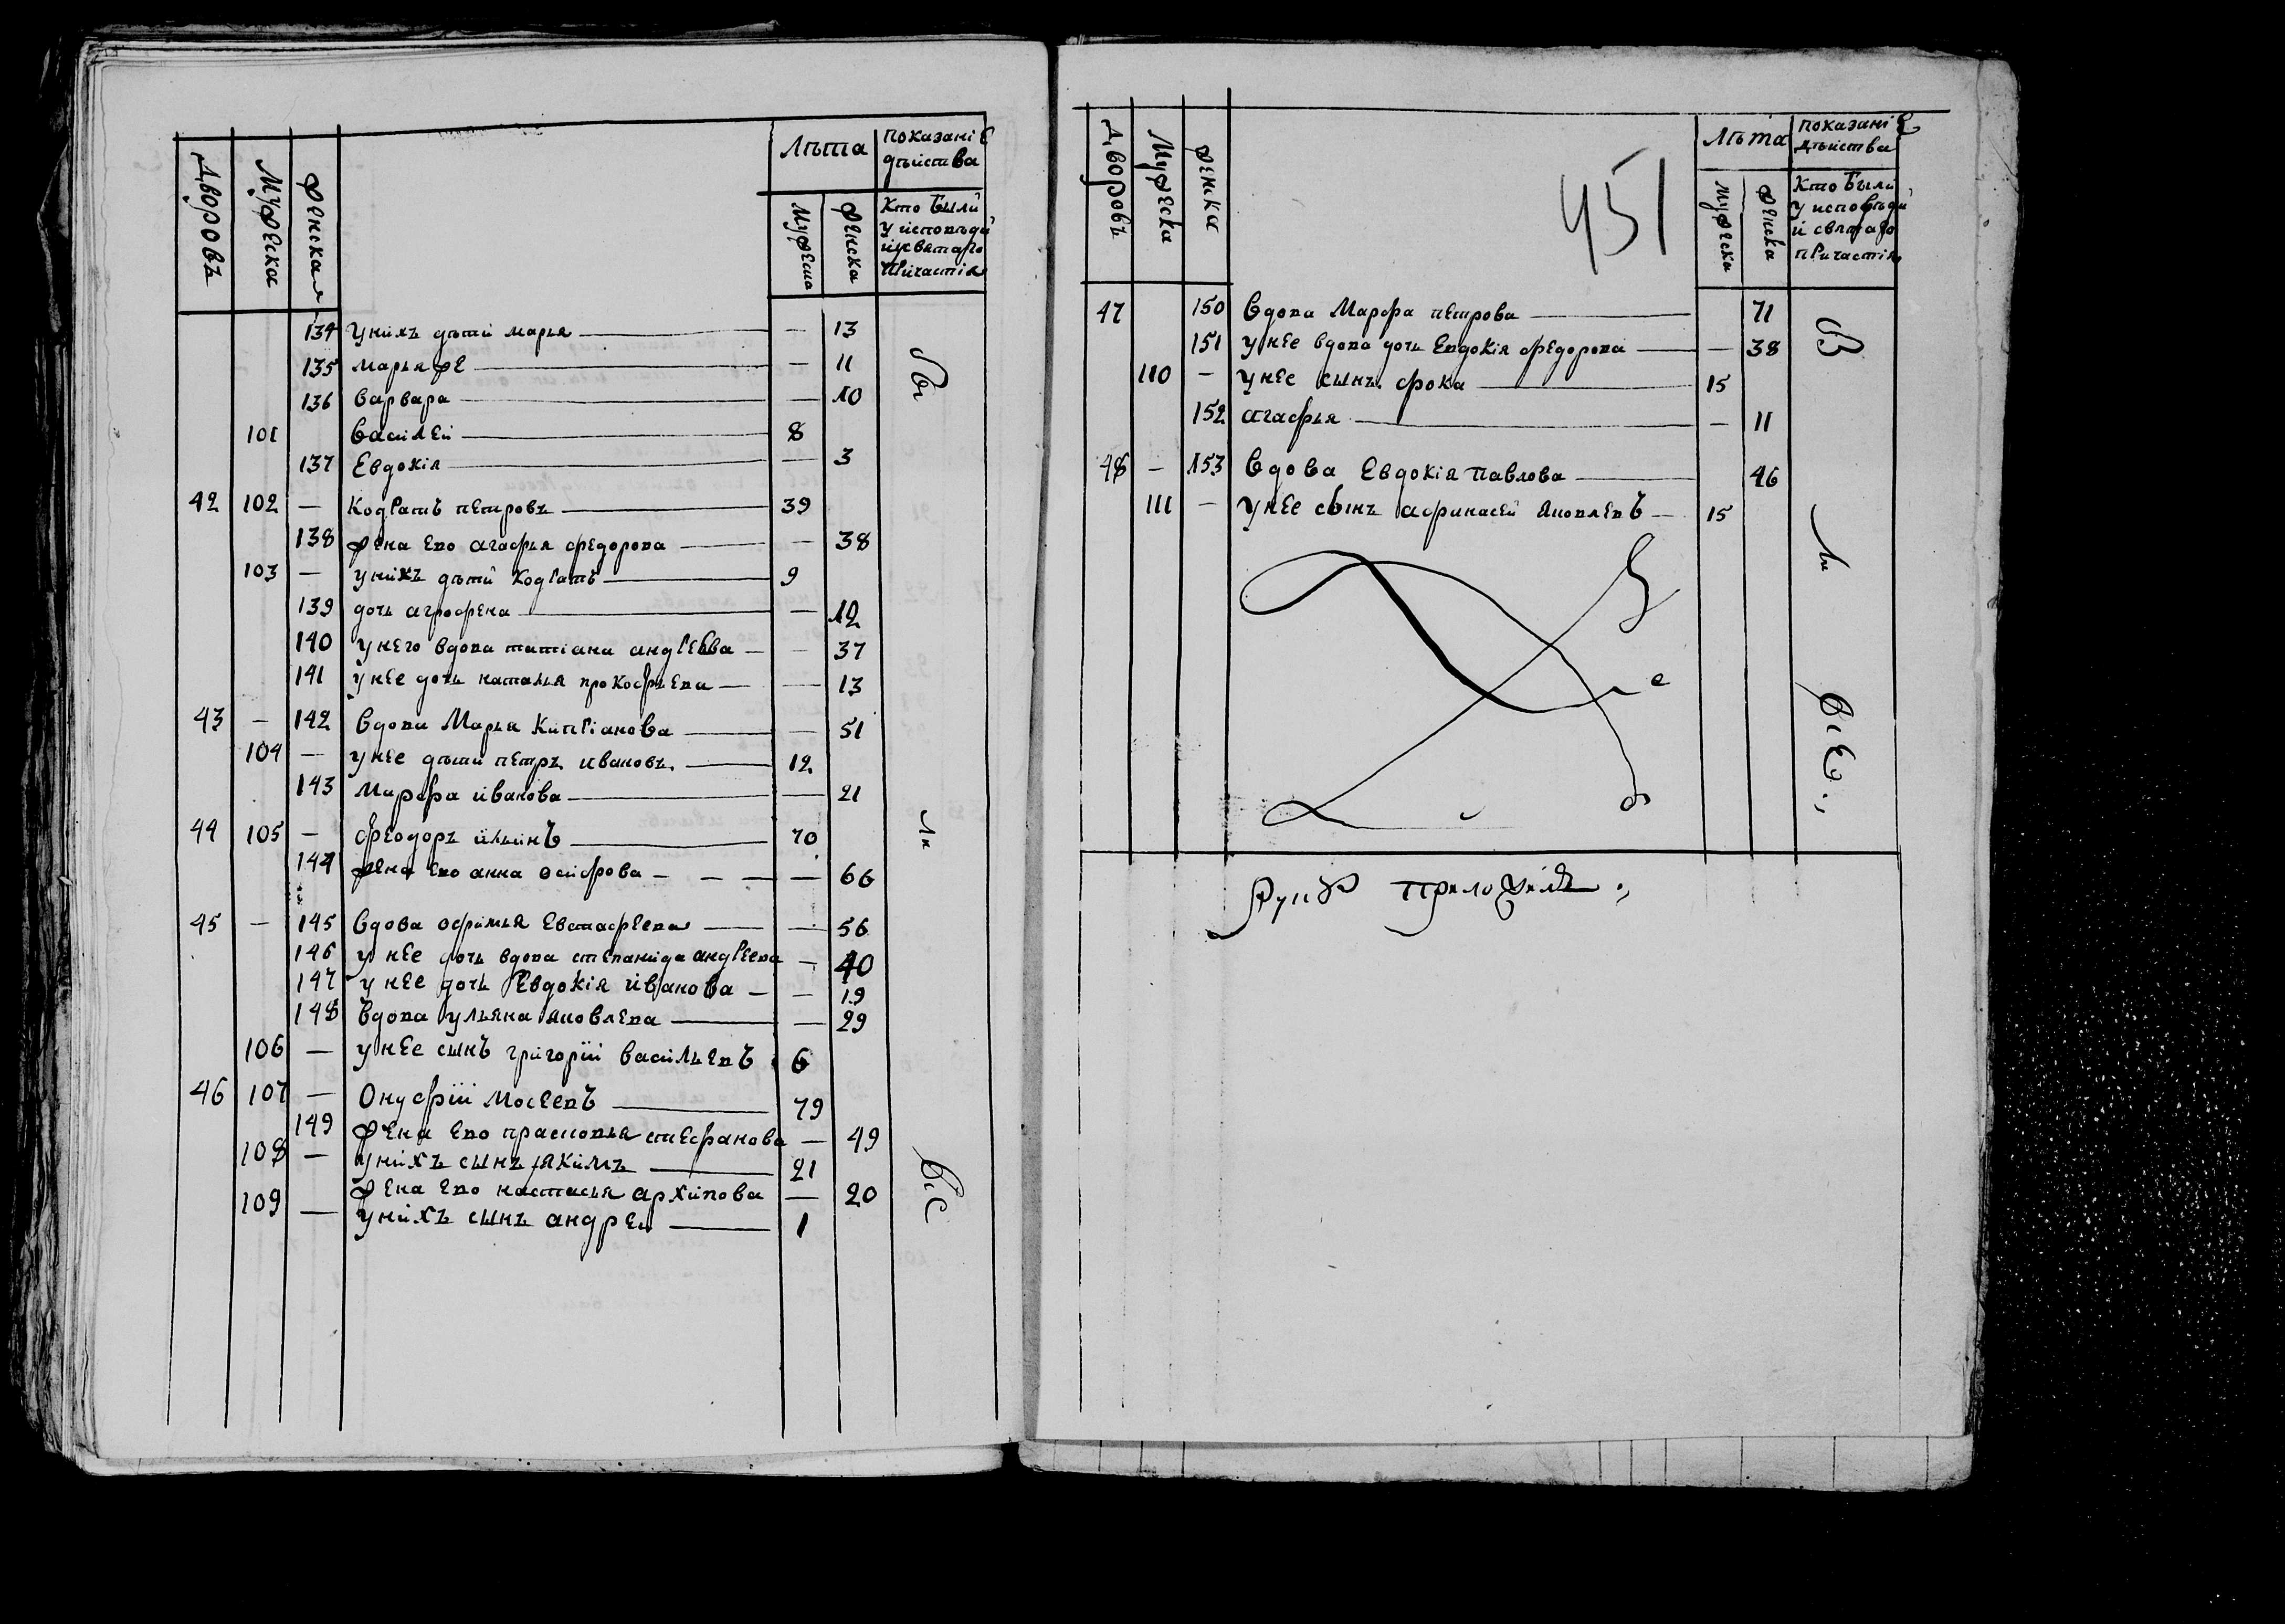 Дворовъ Мужеска Женская Лѣта Показаніе дѣиства
Мужеска Женска Кто были у исповѣди и святаго Причастія
134 У нихъ дѣти марья — 13
135 марья же — 11
136 варвара — 10
101 василей 8
137 Евдокія — 3
42 102 — Кодратъ петровъ 39
138 жена ево агафья федорова — 38
103 — у нихъ дѣти кодратъ 9
139 дочь агрофена — 12
140 у него вдова татіана андреева — 37
141 у нее дочь наталья прокофьева — 13
43 — 142 вдова Марья Кипріанова — 51
104 — у нее дѣти петръ ивановъ 12
143 Марфа иванова — 21
44 105 — феодоръ ильинъ 70
144 жена ево анна осифова — 66
45 — 145 вдова офимья Евстафеева — 56
146 у нее дочь вдова степанида андреева — 40
147 у нее дочь Евдокія иванова — 19
148 вдова ульяна яковлева — 29
106 — у нее сынъ григорій васильевъ 6
46 107 — Онуфрій Мосеевъ 79
149 жена ево прасковья стефанова — 49
108 — у нихъ сынъ якимъ 21
жена ево настасья архипова — 20
109 — у нихъ сынъ андреи 1
451
Дворовъ Мужеска женска Лѣта показаніе дѣиства
мужеска женска Кто были у исповѣди и святаго причастія
47 150 вдова Марфа петрова 71
151 у нее вдова дочь Евдокія федорова — 38
110 — у нее сынъ фока 15
152 агафья — 11
48 — 153 вдова Евдокія павлова 46
111 — у нее сынъ афинасей яковлевъ 15
Руку приложилъ